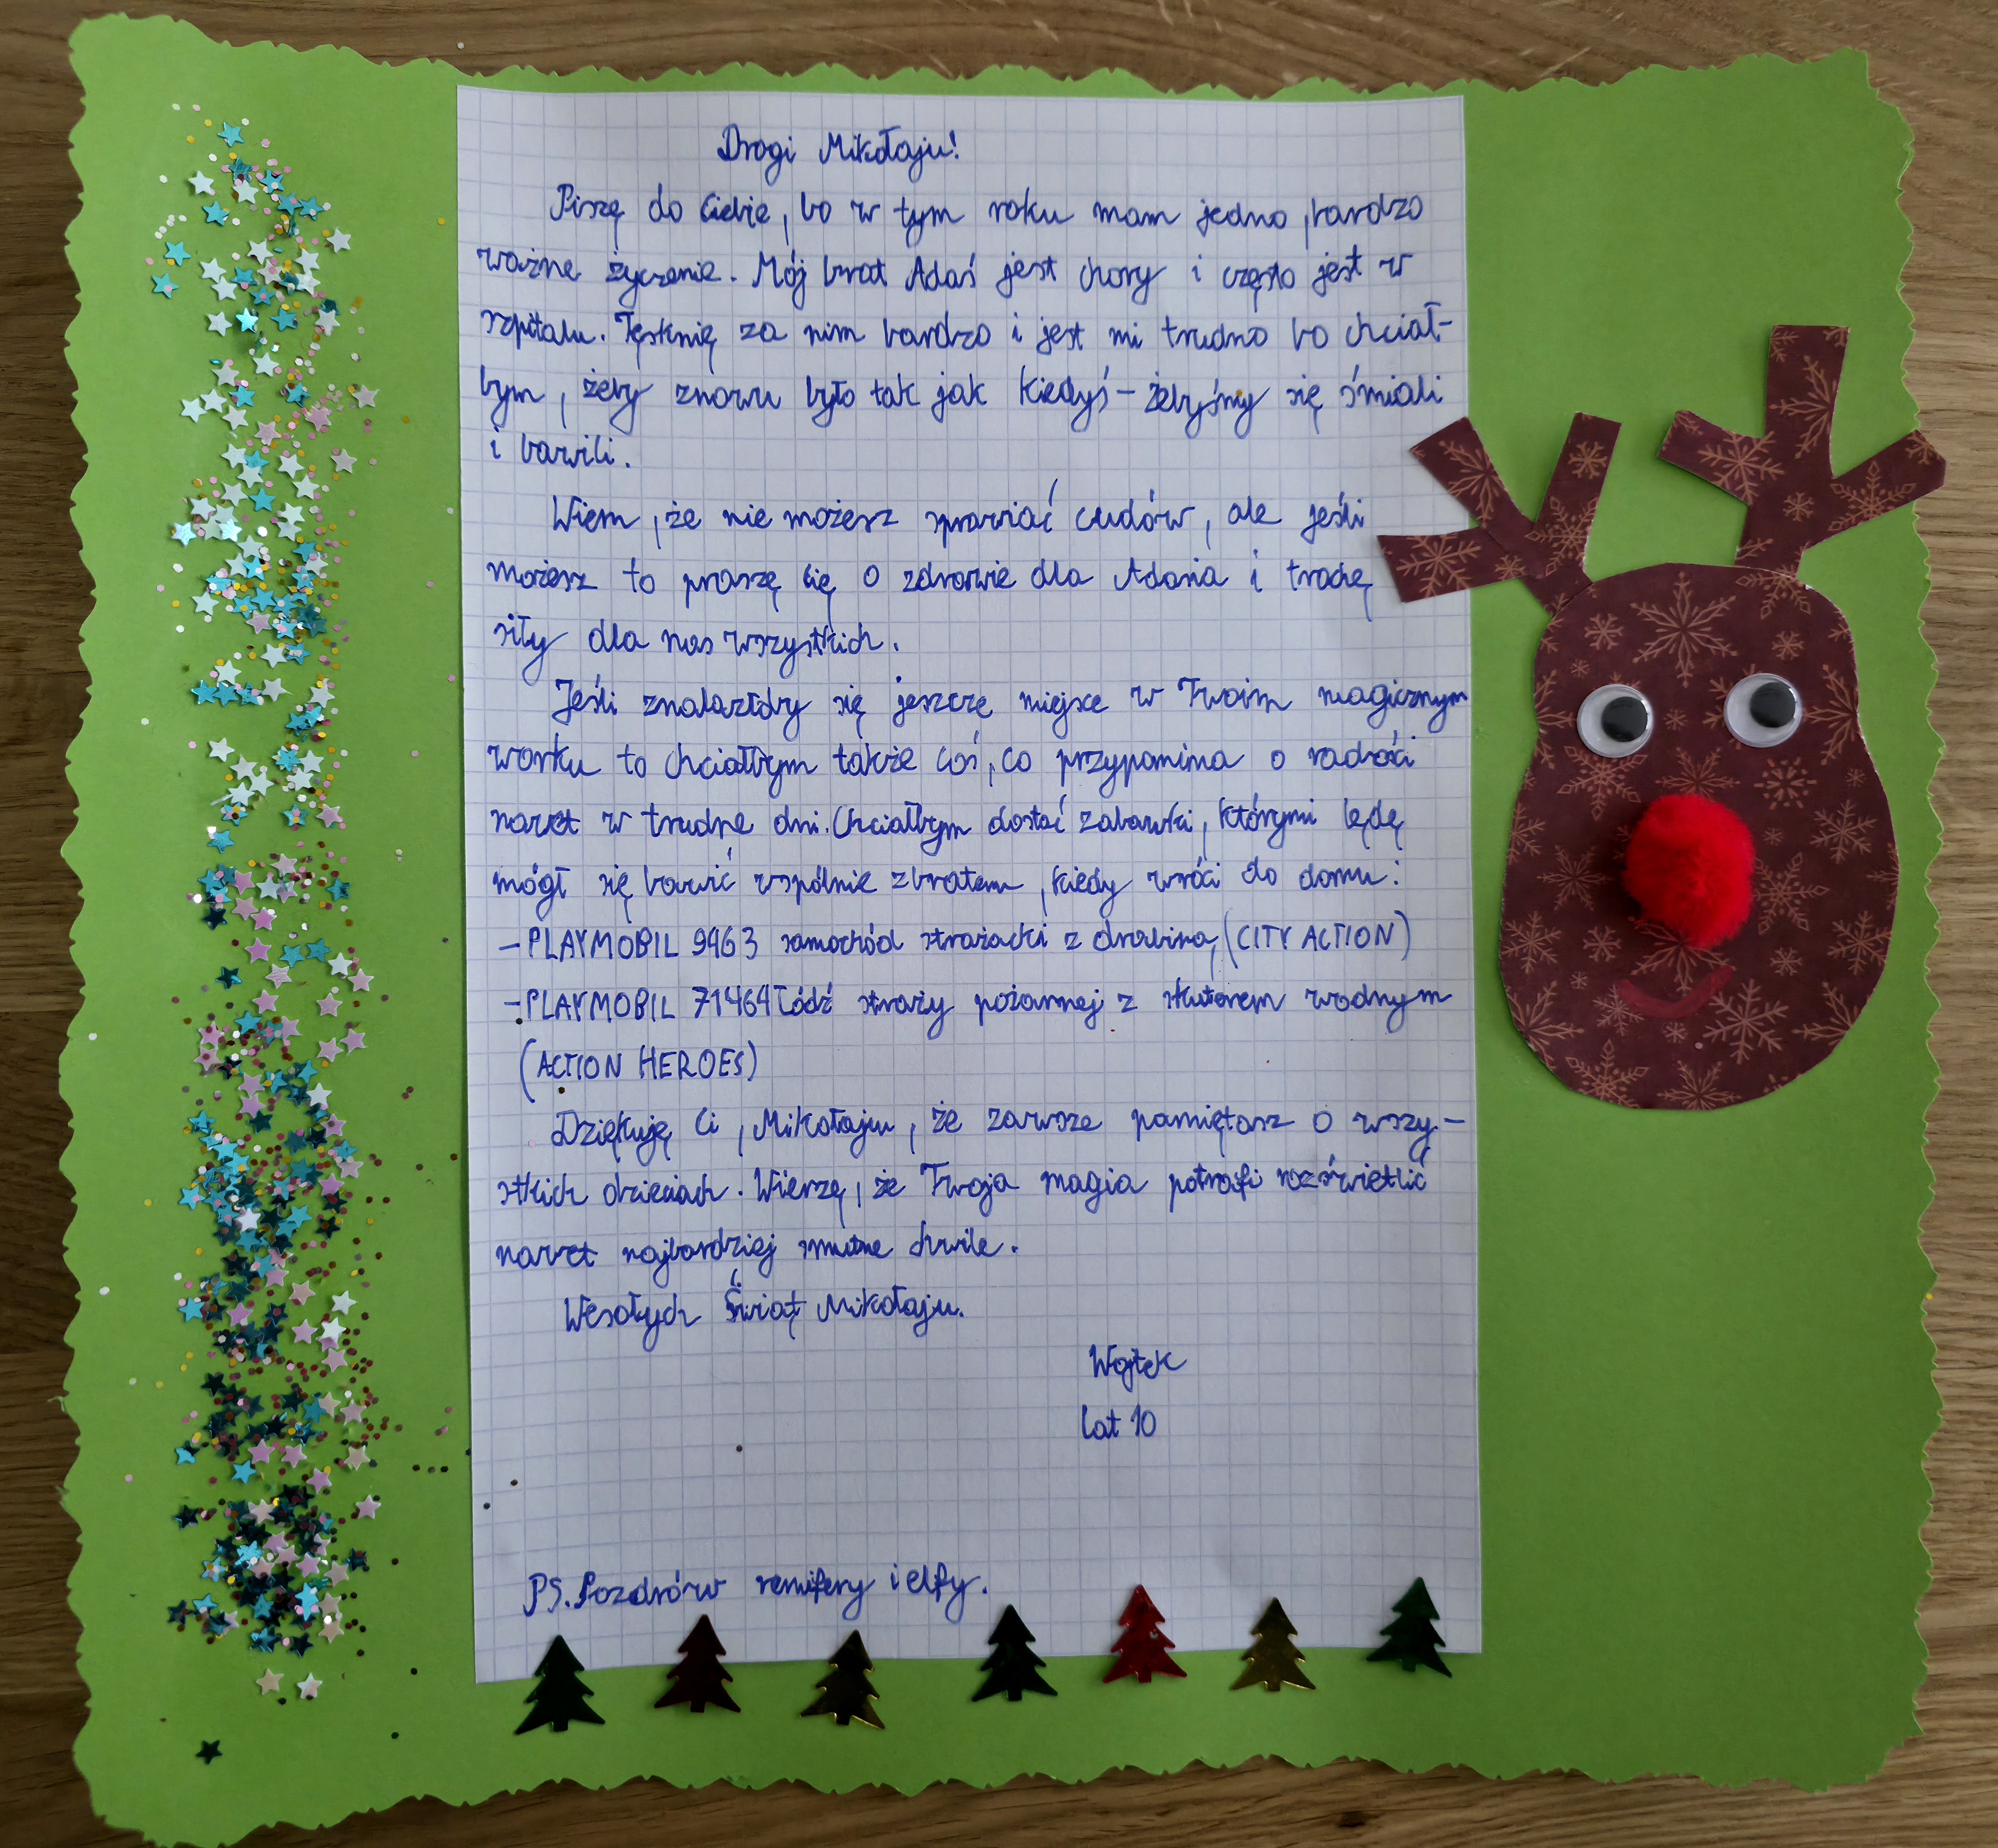 Drogi Mikołaju!
Piszę do Ciebie, bo w tym roku mam jedno, bardzo
ważne życzenie. Mój brat Adaś jest chory i często jest w
szpitalu. Tęsknię za nim bardzo i jest mi trudno bo chciał-
bym, żeby znowu było tak jak kiedyś – żebyśmy się śmiali
i bawili.
Wiem, że nie możesz sprawiać cudów, ale jeśli
możesz to proszę Cię o zdrowie dla Adasia i trochę
siły dla nas wszystkich.
Jeśli znalazłoby się jeszcze miejsce w Twoim magicznym
worku to chciałbym także coś, co przypomina o radości
nawet w trudne dni. Chciałbym dostać zabawki, którymi będę
mógł się bawić wspólnie z bratem, kiedy wróci do domu:
– PLAYMOBIL 9463 samochód strażacki z drabiną (CITY ACTION)
– PLAYMOBIL 71464 Łódź straży pożarnej z skuterem wodnym
(ACTION HEROES)
Dziękuję Ci, Mikołaju, że zawsze pamiętasz o wszy-
stkich dzieciach. Wierzę, że Twoja magia potrafi rozświetlić
nawet najbardziej smutne chwile.
Wesołych Świąt Mikołaju.
Wojtek
lat 10
PS. Pozdrów renifery i elfy.